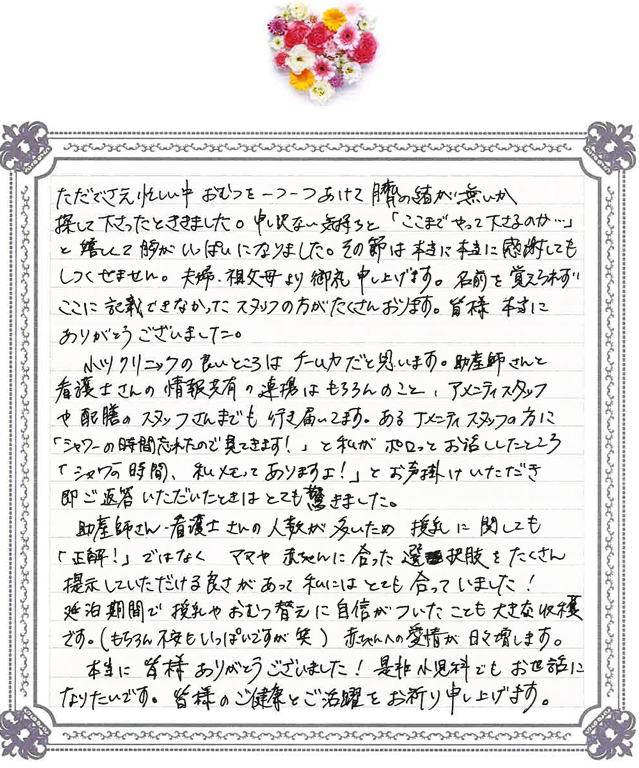 ただでさえ忙しい中 おむつを一つ一つあけて 臍の緒が無いか
探して下さったとききました。申し訳ない気持ちと「ここまでやって下さるのか…」
と嬉しくて胸がいっぱいになりました。その節は本当に本当に感謝しても
しつくせません。夫婦・祖父母より御礼申し上げます。名前を覚えられず
ここに記載できなかったスタッフの方がたくさんおります。皆様 本当に
ありがとうございました。
小ツクリニックの良いところは チーム力だと思います。助産師さんと
看護士さんの情報共有の連携はもちろんのこと、アメニティスタッフ
や配膳のスタッフさんまでも行き届いてます。あるアメニティスタッフの方に
「シャワーの時間忘れたので見てきます!」と私がポロっとお話ししたところ
「シャワーの時間、私メモってありますよ!」とお声掛けいただき
即ご返答いただいたときはとても驚きました。
助産師さん・看護士さんの人数が多いため 授乳に関しても
「正解!」ではなく ママや赤ちゃんに合った選択肢をたくさん
提示していただける良さがあって私にはとても合っていました!
延泊期間で授乳やおむつ替えに自信がついたことも大きな収穫
です。(もちろん不安もいっぱいですが笑) 赤ちゃんへの愛情が日々増します。
本当に皆様ありがとうございました!是非小児科でもお世話に
なりたいです。皆様のご健康とご活躍をお祈り申し上げます。